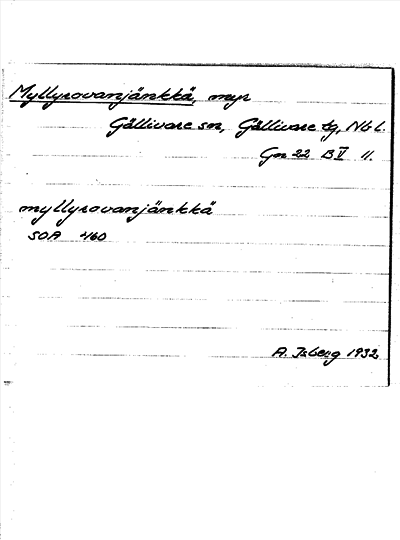 Myllyrovanjänkkä, myr
Gällivare sn, Gällivare tg, Nb l.
Gn 22 B V 11.
myllyrovanjänkkä
SOA 460
A. Isberg 1932